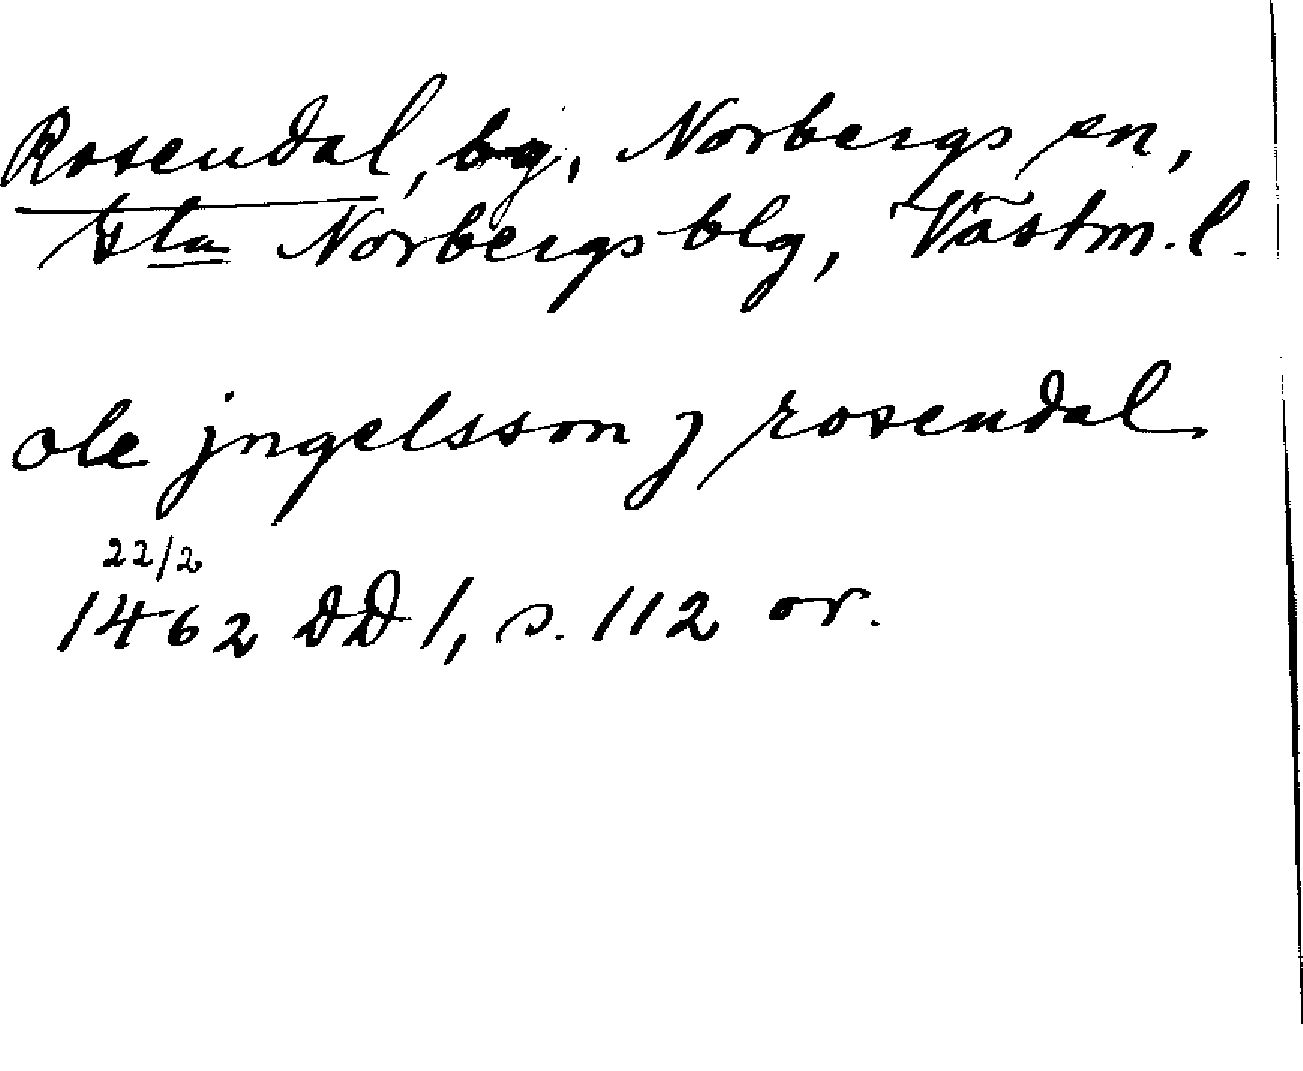 Rosendal, by, Norbergs sn,
Gla Norbergs blg, Västm. l.
ole jngelsson j rosendal
22/2
1462 DD 1, s. 112 or.